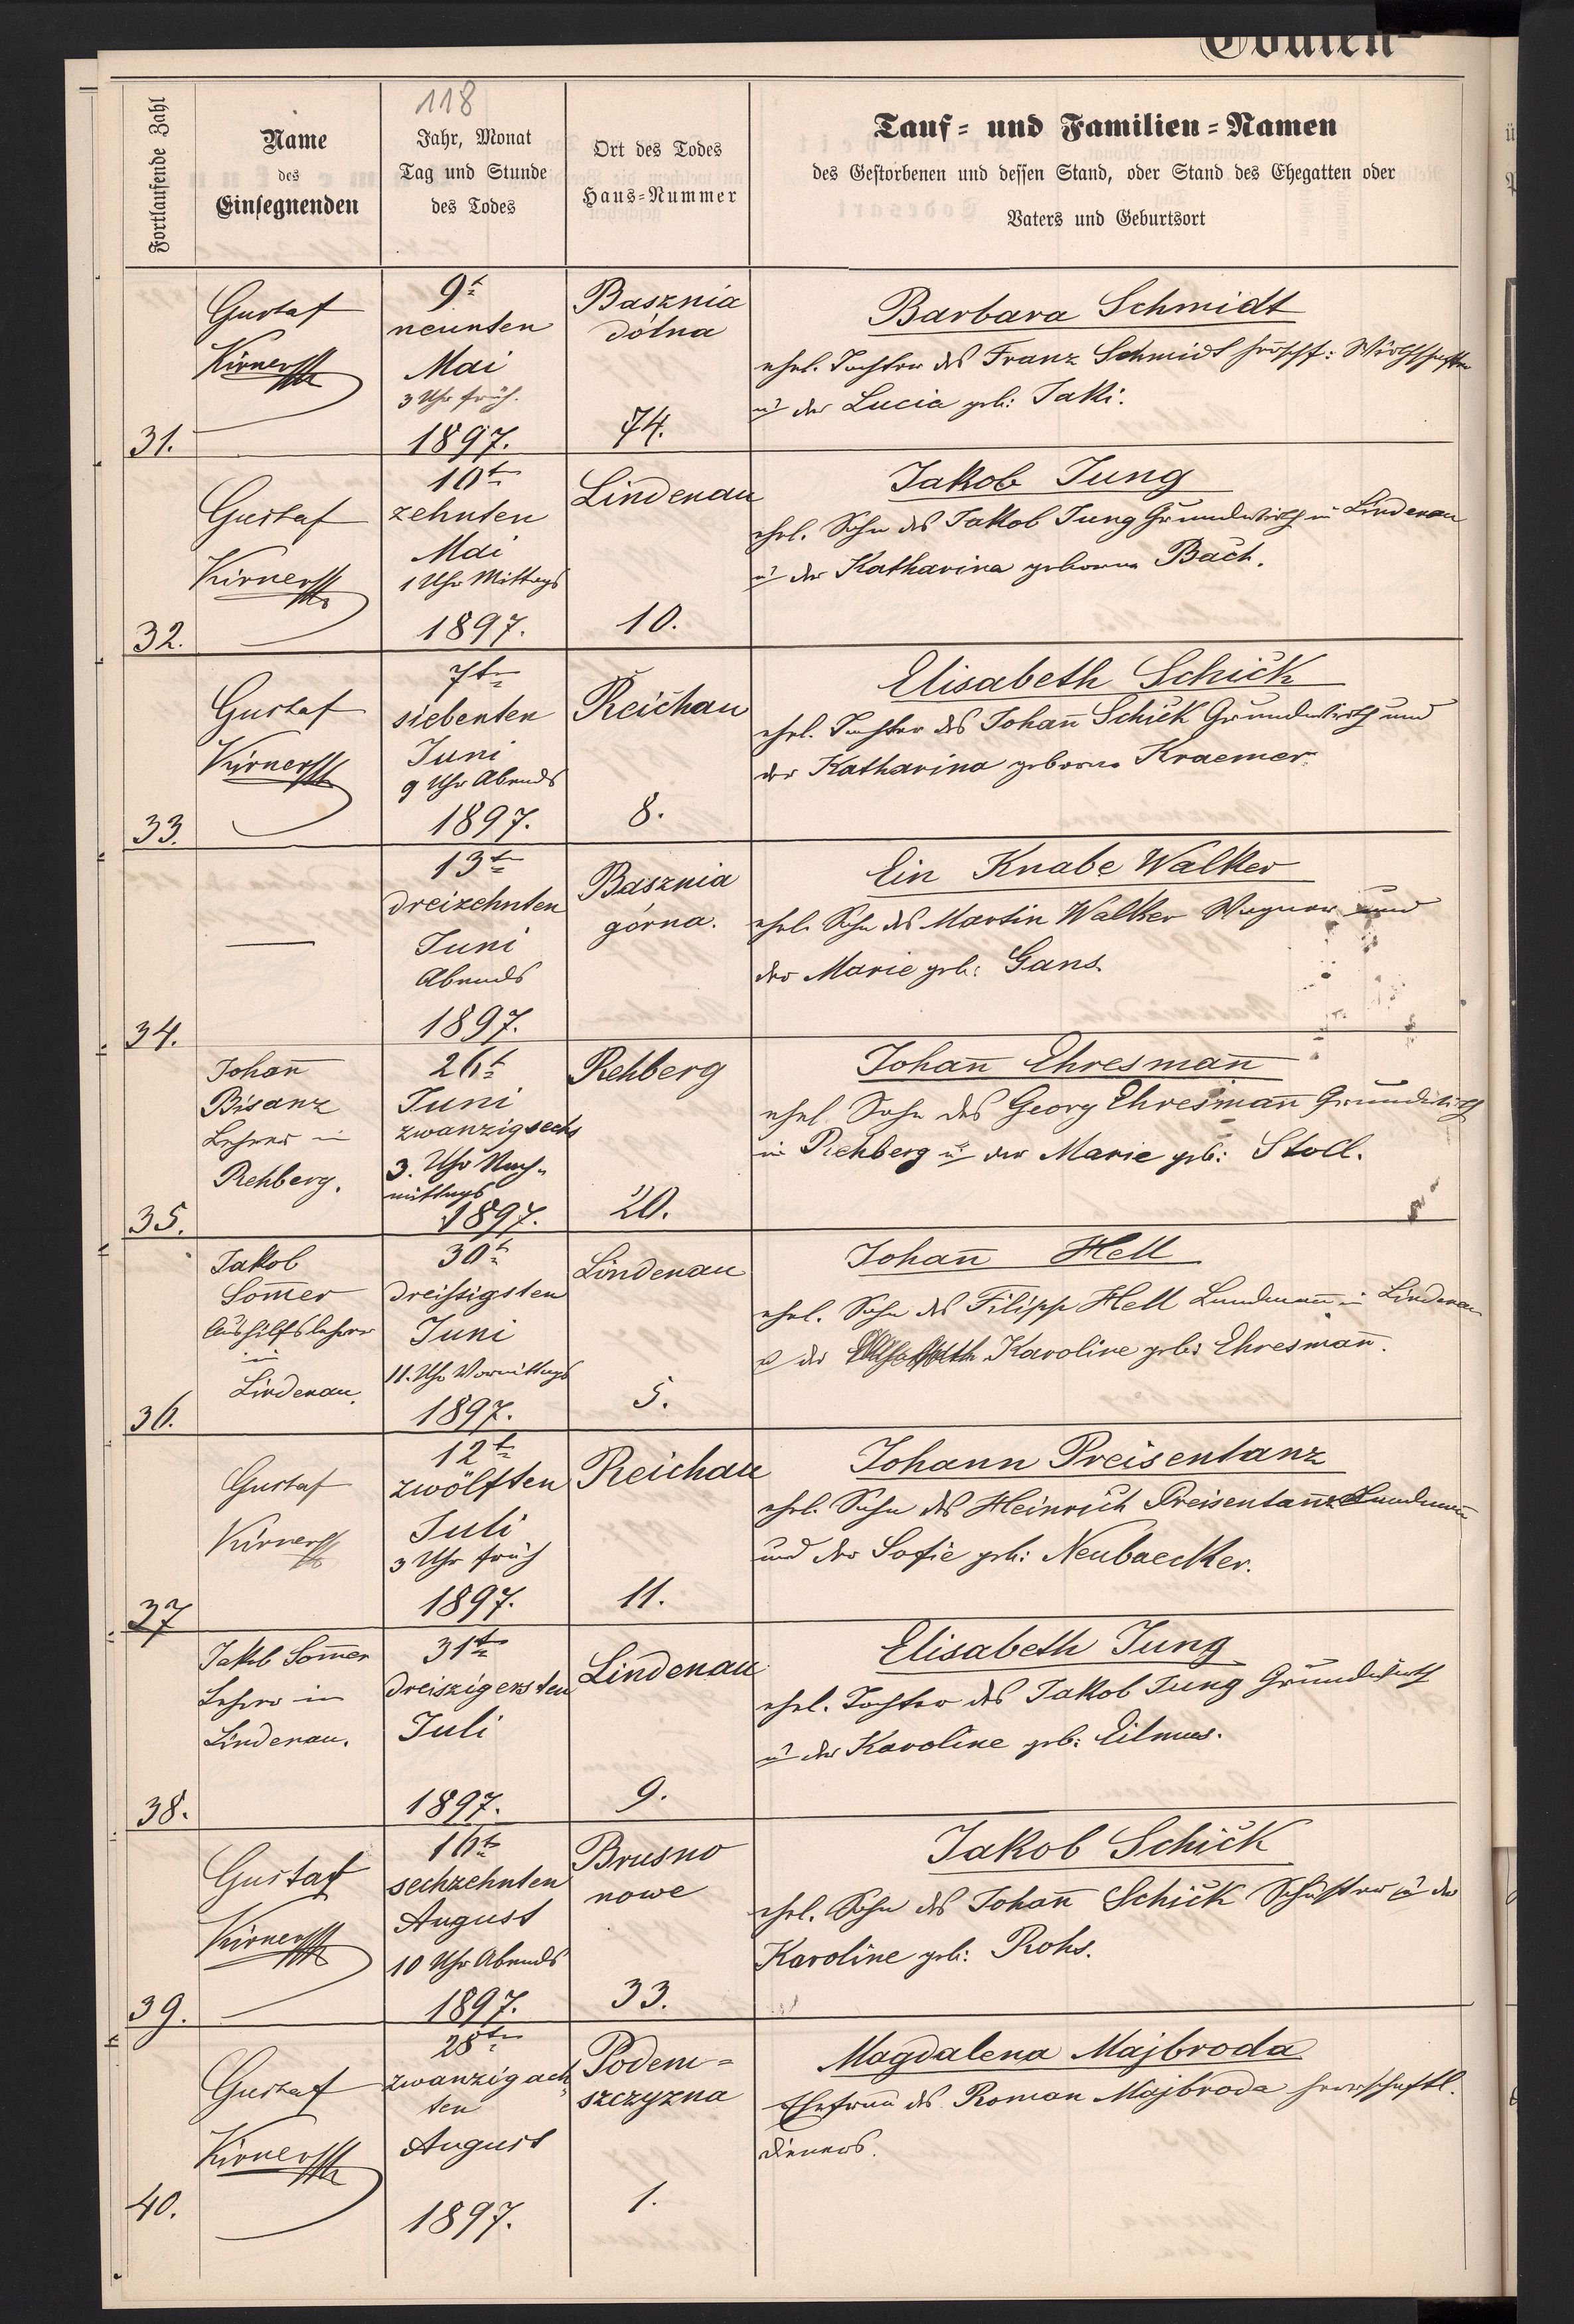 Todten-
118
Fortlaufende Zahl
Name
des
Einsegnenden
Jahr, Monat
Tag und Stunde
des Todes
Ort des Todes
Haus-Nummer
Tauf- und Familien-Namen
des Gestorbenen und dessen Stand, oder Stand des Ehegatten oder
Vaters und Geburtsort
31.
Gustaf
Kirner
9t
neunten
Mai
3 Uhr früh.
1897.
Basznia
dólna
74.
Barbara Schmidt
ehel. Tochter des Franz Schmidt
u der Lucia geb: Taki.
32.
Gustaf
Kirner
10t
zehnten
Mai
1 Uhr Mittags
1897.
Lindenau
10.
Jakob Jung
ehel. Sohn des Jakob Jung Grundwirth in Lindenau
u der Katharina geborene Bach.
33.
Gustaf
Kirner
7t
siebenten
Juni
9 Uhr Abends
1897.
Reichau
8.
Elisabeth Schick
ehel. Tochter des Johan̄ Schick Grundwirth und
der Katharina geborene Kraemer.
34.
13t
dreizehnten
Juni
Abends
1897.
Basznia
górna.
Ein Knabe Walker
ehel. Sohn des Martin Walker Wagner und
der Marie geb: Gans.
35.
Johan̄
Bisanz
Lehrer in
Rehberg.
26t
Juni
zwanzigsechs
3. Uhr Nach-
mittags
1897.
Rehberg
20.
Johan̄ Ehresman̄
ehel Sohn des Georg Ehresman̄ Grundwirth
in Rehberg u der Marie geb: Stoll.
36.
Jakob
Som̄er
Aushilfslehrer
in
Lindenau.
30t
dreissigsten
Juni
11. Uhr Vormittags
1897.
Lindenau
5.
Johan̄ Hell
ehel. Sohn des Filipp Hell Landman̄ in Lindenau
u der Karoline geb: Ehresman̄.
37
Gustaf
Kirner
12t
zwölften
Juli
3 Uhr früh
1897.
Reichau
11.
Johann Preisentanz
ehel. Sohn des Heinrich Preisentanz Landman̄
und der Sofie geb: Neubaecker.
38.
Jakob Som̄er
Lehrer in
Lindenau.
31t
dreiszigersten
Juli
1897.
Lindenau
9.
Elisabeth Jung
ehel. Tochter des Jakob Jung Grundwirth
u der Karoline geb: Eilmes.
39.
Gustaf
Kirner
16t
sechzehnten
August
10 Uhr Abends
1897.
Brusno
nowe
33.
Jakob Schick
ehel. Sohn des Johan̄ Schick Schuster u der
Karoline geb: Rohs.
40.
Gustaf
Kirner
28t
zwanzigach
ten
August
1897.
Podem-
szczyzna
1.
Magdalena Majbroda
Ehefrau des Roman Majbroda herrschaftl.
Dieners.